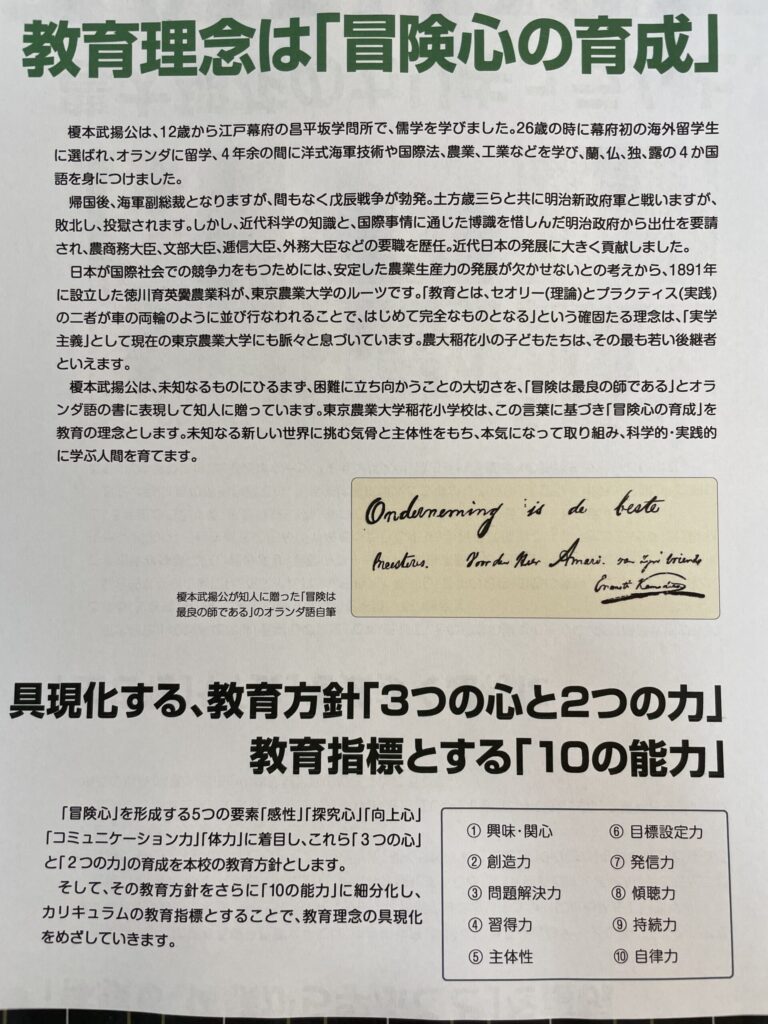 教育理念は「冒険心の育成」
榎本武揚公は、12歳から江戸幕府の昌平坂学問所で、儒学を学びました。26歳の時に幕府初の海外留学生
に選ばれ、オランダに留学、4年余の間に洋式海軍技術や国際法、農業、工業などを学び、蘭、仏、独、露の4か国
語を身につけました。
帰国後、海軍副総裁となりますが、間もなく戊辰戦争が勃発。土方歳三らと共に明治新政府軍と戦いますが、
敗北し、投獄されます。しかし、近代科学の知識と、国際事情に通じた博識を惜しんだ明治政府から出仕を要請
され、農商務大臣、文部大臣、逓信大臣、外務大臣などの要職を歴任。近代日本の発展に大きく貢献しました。
日本が国際社会での競争力をもつためには、安定した農業生産力の発展が欠かせないとの考えから、1891年
に設立した徳川育英黌農業科が、東京農業大学のルーツです。「教育とは、セオリー(理論)とプラクティス(実践)
の二者が車の両輪のように並び行なわれることで、はじめて完全なものとなる」という確固たる理念は、「実学
主義」として現在の東京農業大学にも脈々と息づいています。農大稲花小の子どもたちは、その最も若い後継者
といえます。
榎本武揚公は、未知なるものにひるまず、困難に立ち向かうことの大切さを、「冒険は最良の師である」とオラ
ンダ語の書に表現して知人に贈っています。東京農業大学稲花小学校は、この言葉に基づき「冒険心の育成」を
教育の理念とします。未知なる新しい世界に挑む気骨と主体性をもち、本気になって取り組み、科学的・実践的
に学ぶ人間を育てます。
Onderneming is de beste
meesteres. Voor den Heer
榎本武揚公が知人に贈った「冒険は
最良の師である」のオランダ語自筆
具現化する、教育方針「3つの心と2つの力」
教育指標とする「10の能力」
「冒険心」を形成する5つの要素「感性」「探究心」「向上心」
「コミュニケーション力」「体力」に着目し、これら「3つの心」
と「2つの力」の育成を本校の教育方針とします。
そして、その教育方針をさらに「10の能力」に細分化し、
カリキュラムの教育指標とすることで、教育理念の具現化
をめざしていきます。
① 興味・関心
② 創造力
③ 問題解決力
④ 習得力
⑤ 主体性
⑥ 目標設定力
⑦ 発信力
⑧ 傾聴力
⑨ 持続力
⑩ 自律力